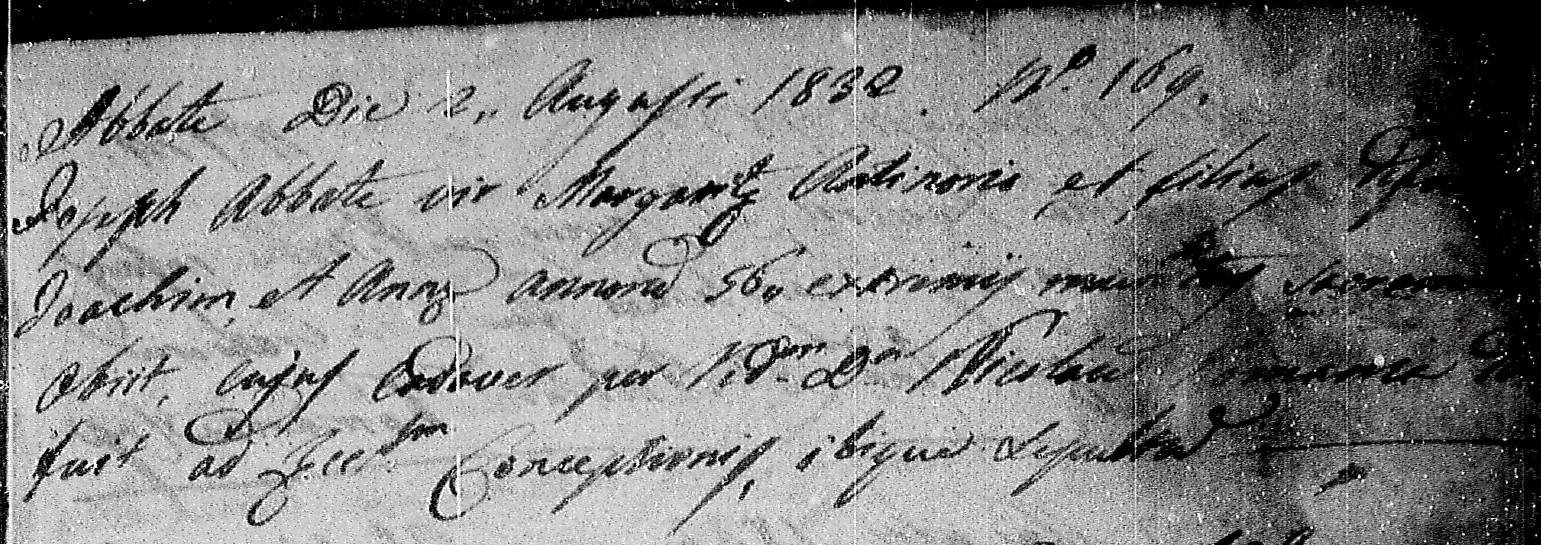 Abbate Die 2,, Augusti 1832. N.º 169.
Joseph Abbate vir Margaritæ Antinoris et filius
Joachim, et Annæ annorũ 56,, extremis munitus Sacram
obiit, cujus Cadaver per Rdum Dn Nicolaũ
fuit ad Eccłam Conceptionis, ibique Sepultũ